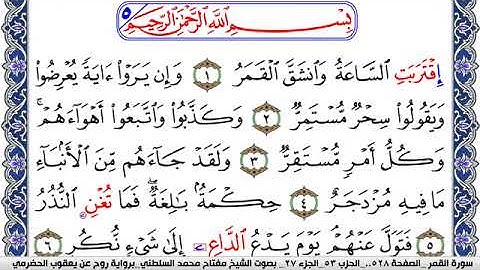 بِسْمِ ٱللَّهِ ٱلرَّحْمَٰنِ ٱلرَّحِيمِ ٥
إِقْتَرَبَتِ السَّاعَةُ وَانْشَقَّ الْقَمَرُ ١ وَإِن يَرَوْا۟ ءَايَةً يُعْرِضُوا۟
وَيَقُولُوا۟ سِحْرٌ مُّسْتَمِرٌّ ٢ وَكَذَّبُوا۟ وَاتَّبَعُوا۟ أَهْوَآءَهُمْ ۚ
وَكُلُّ أَمْرٍ مُّسْتَقِرٌّ ٣ وَلَقَدْ جَآءَهُم مِّنَ الْأَنۢبَآءِ
مَا فِيهِ مُزْدَجَرٌ ٤ حِكْمَةٌۢ بَالِغَةٌ ۖ فَمَا تُغْنِ النُّذُرُ
٥ فَتَوَلَّ عَنْهُمْ ۘ يَوْمَ يَدْعُ الدَّاعِ إِلَىٰ شَىْءٍ نُّكُرٍ ٦
سورة القمر_الصفحة ٥٢٨_الحزب ٥٣_الجزء ٢٧_ بصوت الشيخ مفتاح محمد السلطني_برواية روح عن يعقوب الحضرمي